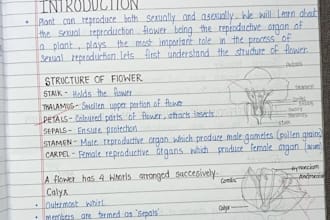 INTRODUCTION
• Plant can reproduce both sexually and asexually. We will learn about
the sexual reproduction flower being the reproductive organ of
a plant, plays the most important role in the process of
sexual reproduction lets first understand the structure of flower.
STRUCTURE OF FLOWER
STALK - Holds the flower
THALAMUS - Swollen upper portion of flower
PETALS - Coloured parts of flower, attracts insects
SEPALS - Ensure protection
STAMEN - Male reproductive organ which produce male gametes (pollen grains)
CARPEL - Female reproductive organs which produce female organ (ovum)
A flower has 4 whorls arranged succesively.
Calyx
• Outermost whorl
• members are formed as 'sepals'
Petals
Stamen
Corolla
Calyx
Gynoecium
Androecium